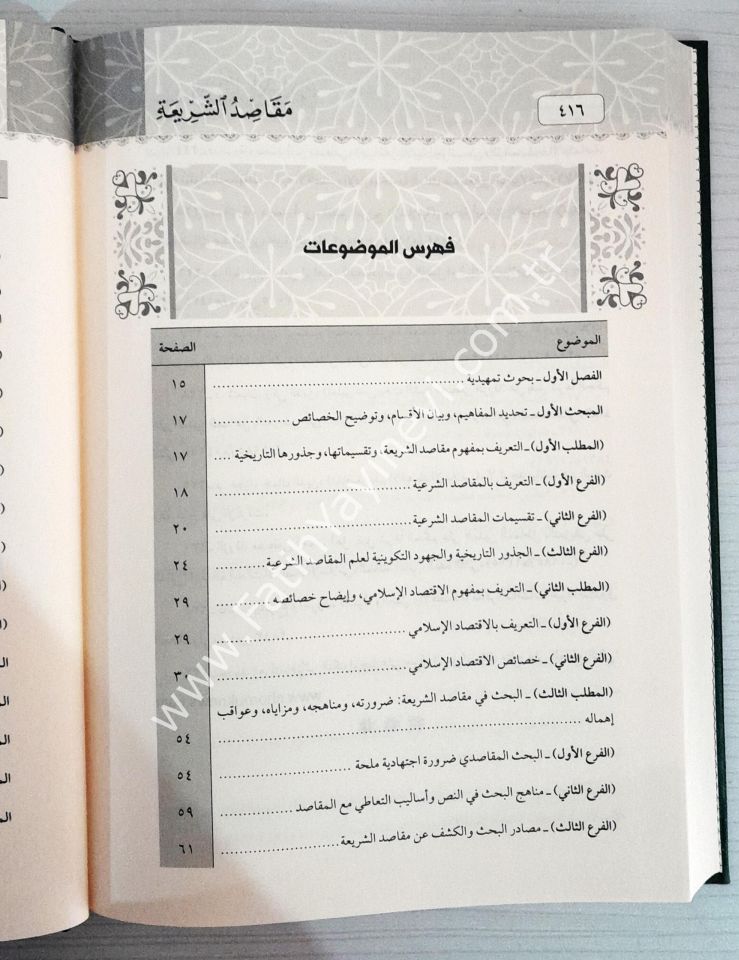 مَقَاصِدُ الشَّرِيعَةِ
٤١٦
فهرس الموضوعات
الموضوع الصفحة
الفصل الأول ـ بحوث تمهيدية ١٥
المبحث الأول ـ تحديد المفاهيم، وبيان الأقسام، وتوضيح الخصائص ١٧
(المطلب الأول) ـ التعريف بمفهوم مقاصد الشريعة، وتقسيماتها، وجذورها التاريخية ١٧
(الفرع الأول) ـ التعريف بالمقاصد الشرعية ١٨
(الفرع الثاني) ـ تقسيمات المقاصد الشرعية ٢٠
(الفرع الثالث) ـ الجذور التاريخية والجهود التكوينية لعلم المقاصد الشرعية ٢٤
(المطلب الثاني) ـ التعريف بمفهوم الاقتصاد الإسلامي، وإيضاح خصائصه ٢٩
(الفرع الأول) ـ التعريف بالاقتصاد الإسلامي ٢٩
(الفرع الثاني) ـ خصائص الاقتصاد الإسلامي ٣٠
(المطلب الثالث) ـ البحث في مقاصد الشريعة: ضرورته، ومناهجه، ومزاياه، وعواقب
إهماله ٥٤
(الفرع الأول) ـ البحث المقاصدي ضرورة اجتهادية ملحة ٥٤
(الفرع الثاني) ـ مناهج البحث في النص وأساليب التعاطي مع المقاصد ٥٩
(الفرع الثالث) ـ مصادر البحث والكشف عن مقاصد الشريعة ٦١
www.Fatihyayinevi.com.tr